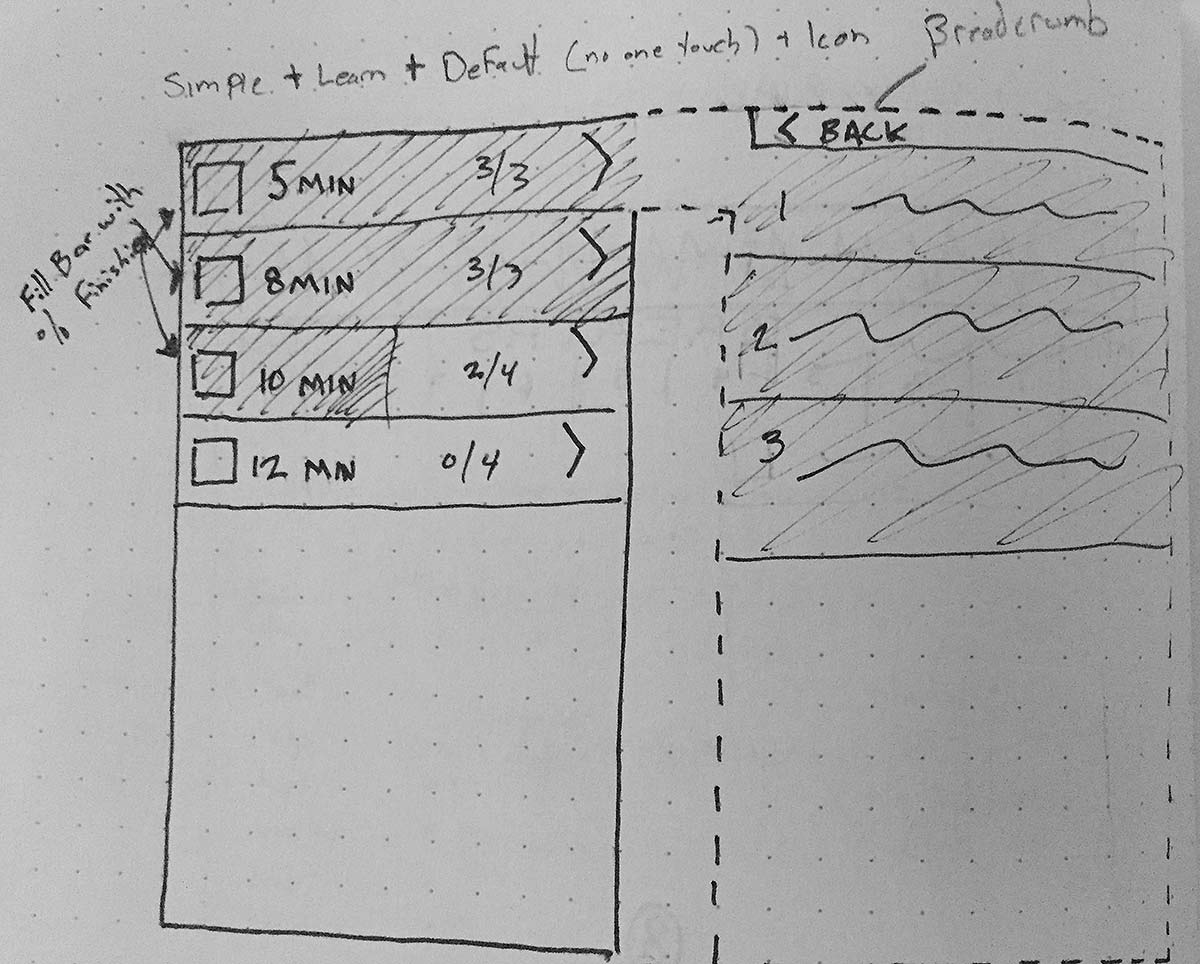 Simple + Learn + Default (no one touch) + Icon
Breadcrumb
< BACK
Fill Bar with
% Finished
5 MIN 3/3 >
8 MIN 3/3 >
10 MIN 2/4 >
12 MIN 0/4 >
1
2
3